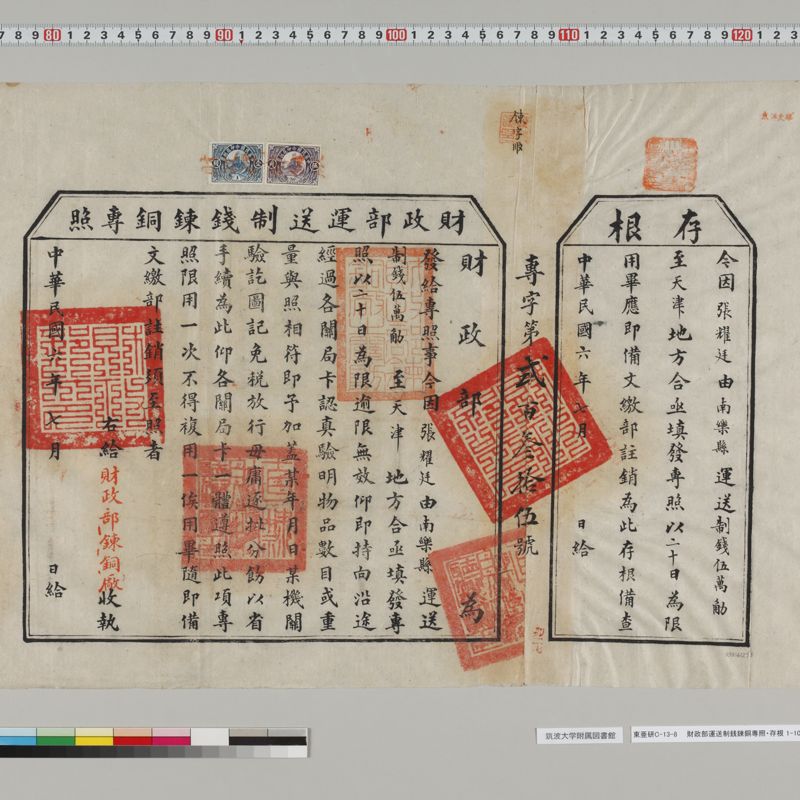 存根
今因張耀廷由南樂縣運送制錢伍萬觔
至天津地方合亟填發專照以二十日為限
用畢應即備文繳部註銷為此存根備查
中華民國六年七月 日給
專字第貳百叁拾伍號
財政部運送制錢鍊銅專照
財政部為
發給專照事今因張耀廷由南樂縣運送
制錢伍萬觔至天津地方合亟填發專
照以二十日為限逾限無效仰即持向沿途
經過各關局卡認真驗明物品數目或重
量與照相符即予加蓋某年月日某機關
驗訖圖記免稅放行毋庸逐批分飭以省
手續為此仰各關局卡一體遵照此項專
照限用一次不得複用一俟用畢隨即備
文繳部註銷須至照者
右給財政部鍊銅廠收執
中華民國六年七月 日給
筑波大学附属図書館
東亜研C-13-8 財政部運送制銭錬銅専照・存根 1-10